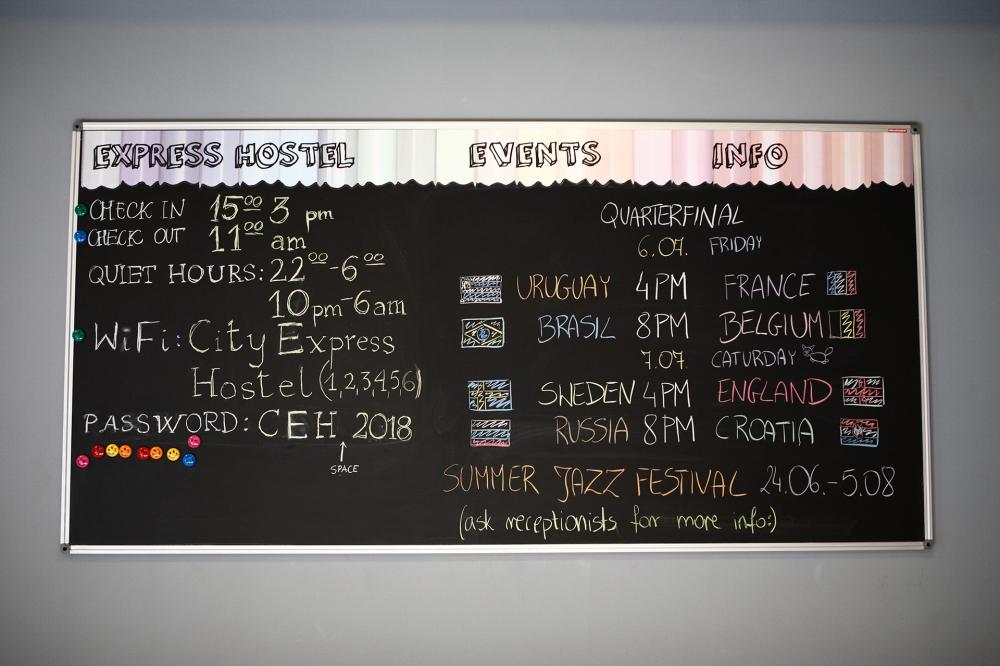 EXPRESS HOSTEL
CHECK IN 15⁰⁰ 3 pm
CHECK OUT 11⁰⁰ am
QUIET HOURS: 22⁰⁰-6⁰⁰
10pm-6am
WiFi: City Express
Hostel (1,2,3,4,5,6)
PASSWORD: CEH 2018
↑
SPACE
EVENTS INFO
QUARTERFINAL
6.07. FRIDAY
URUGUAY 4PM FRANCE
BRASIL 8PM BELGIUM
7.07. CATURDAY
SWEDEN 4PM ENGLAND
RUSSIA 8PM CROATIA
SUMMER JAZZ FESTIVAL 24.06.-5.08
(ask receptionists for more info:)